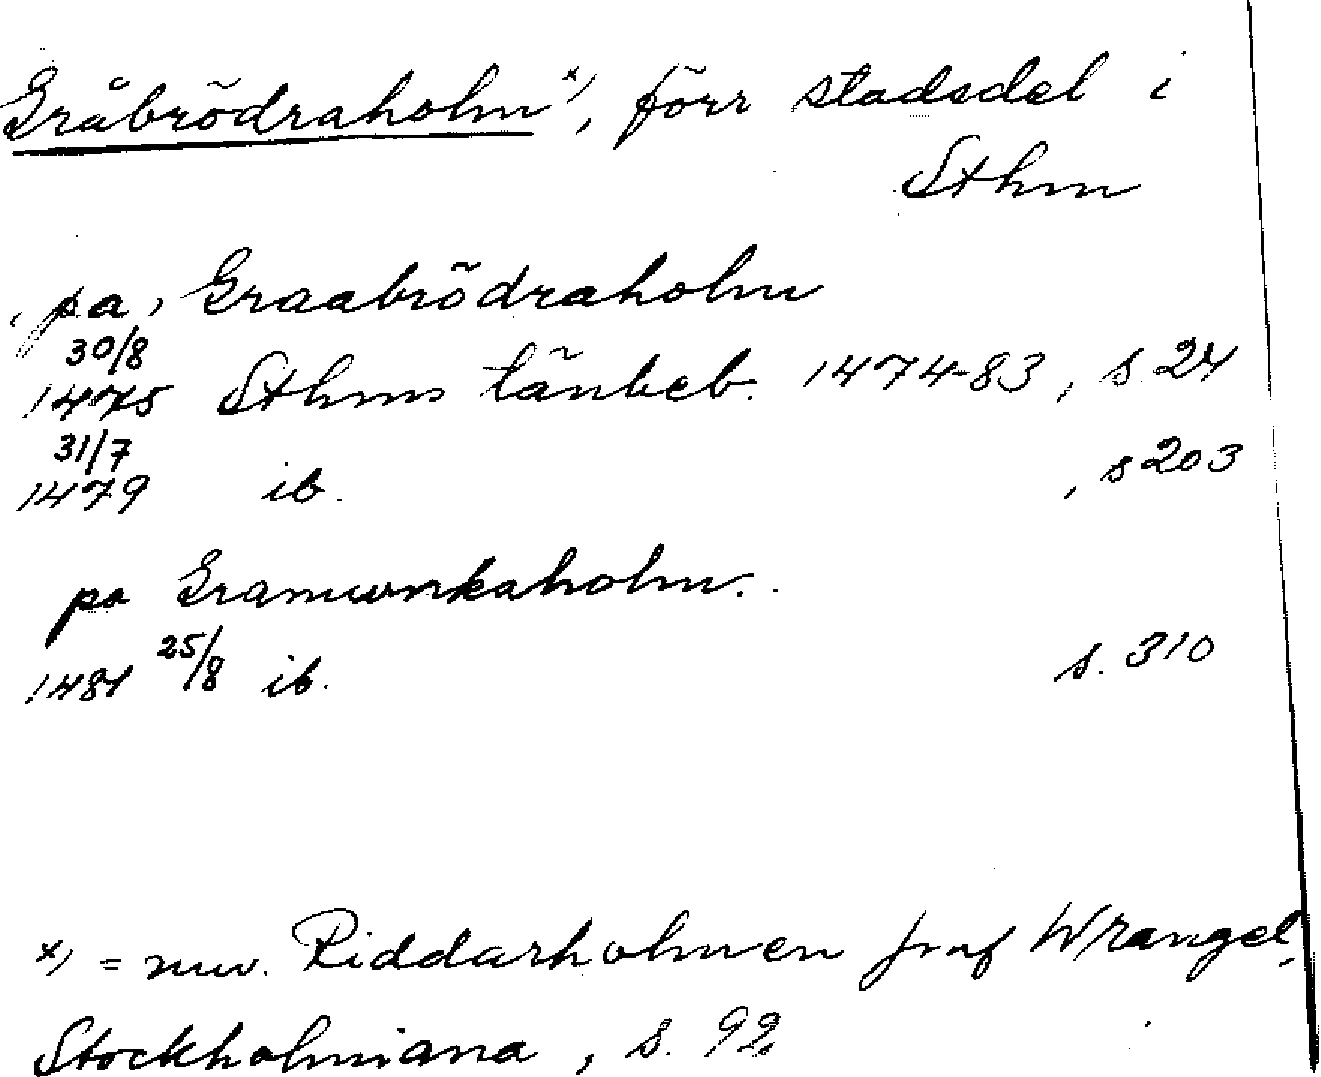 Gråbrödraholm x), förr stadsdel i
Sthm
pa, Graabrödraholm
30/8
1475 Sthms tänkeb. 1474-83, s 24
31/7
1479 ib. , s 203
pa Gramunkaholm.
1481 25/8 ib. s. 310
x) = nuv. Riddarholmen Wrangel,
Stockholmiana, s. 92